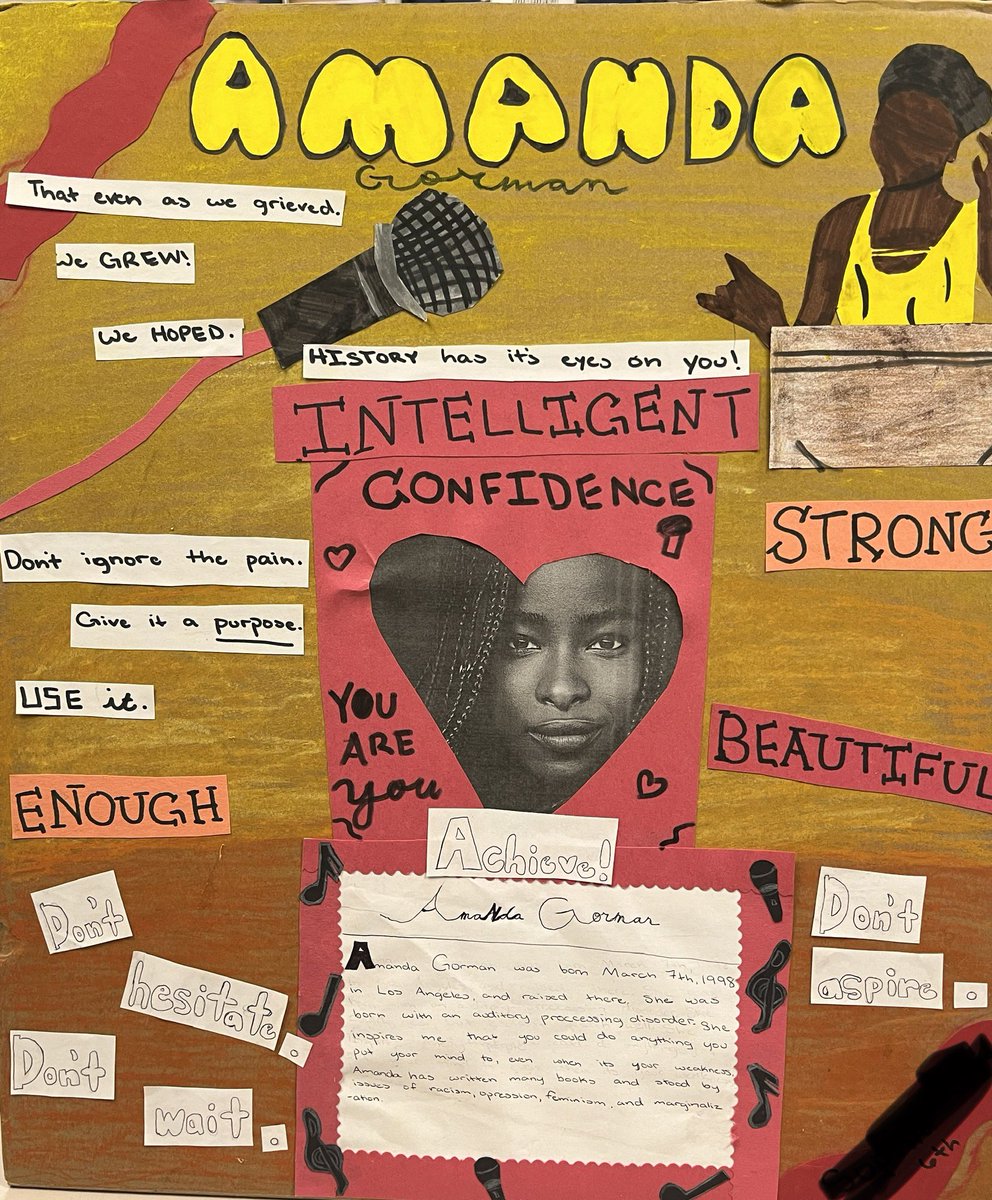 AMANDA
Gorman
That even as we grieved.
We GREW!
We HOPED.
HISTORY has it's eyes on you!
INTELLIGENT
CONFIDENCE
STRONG
Don't ignore the pain.
Give it a purpose.
USE it.
YOU
ARE
you
BEAUTIFUL
ENOUGH
Achieve!
Don't
hesitate.
Don't
wait.
Amanda Gorman
Amanda Gorman was born March 7th, 1998
in Los Angeles, and raised there, She was
born with an auditory proccessing disorder. She
inspires me that you could do anything you
put your mind to, even when its your weakness
Amanda has written many books and stood by
issues of racism, opression, feminism, and marginaliz
ation.
Don't
aspire.
6th